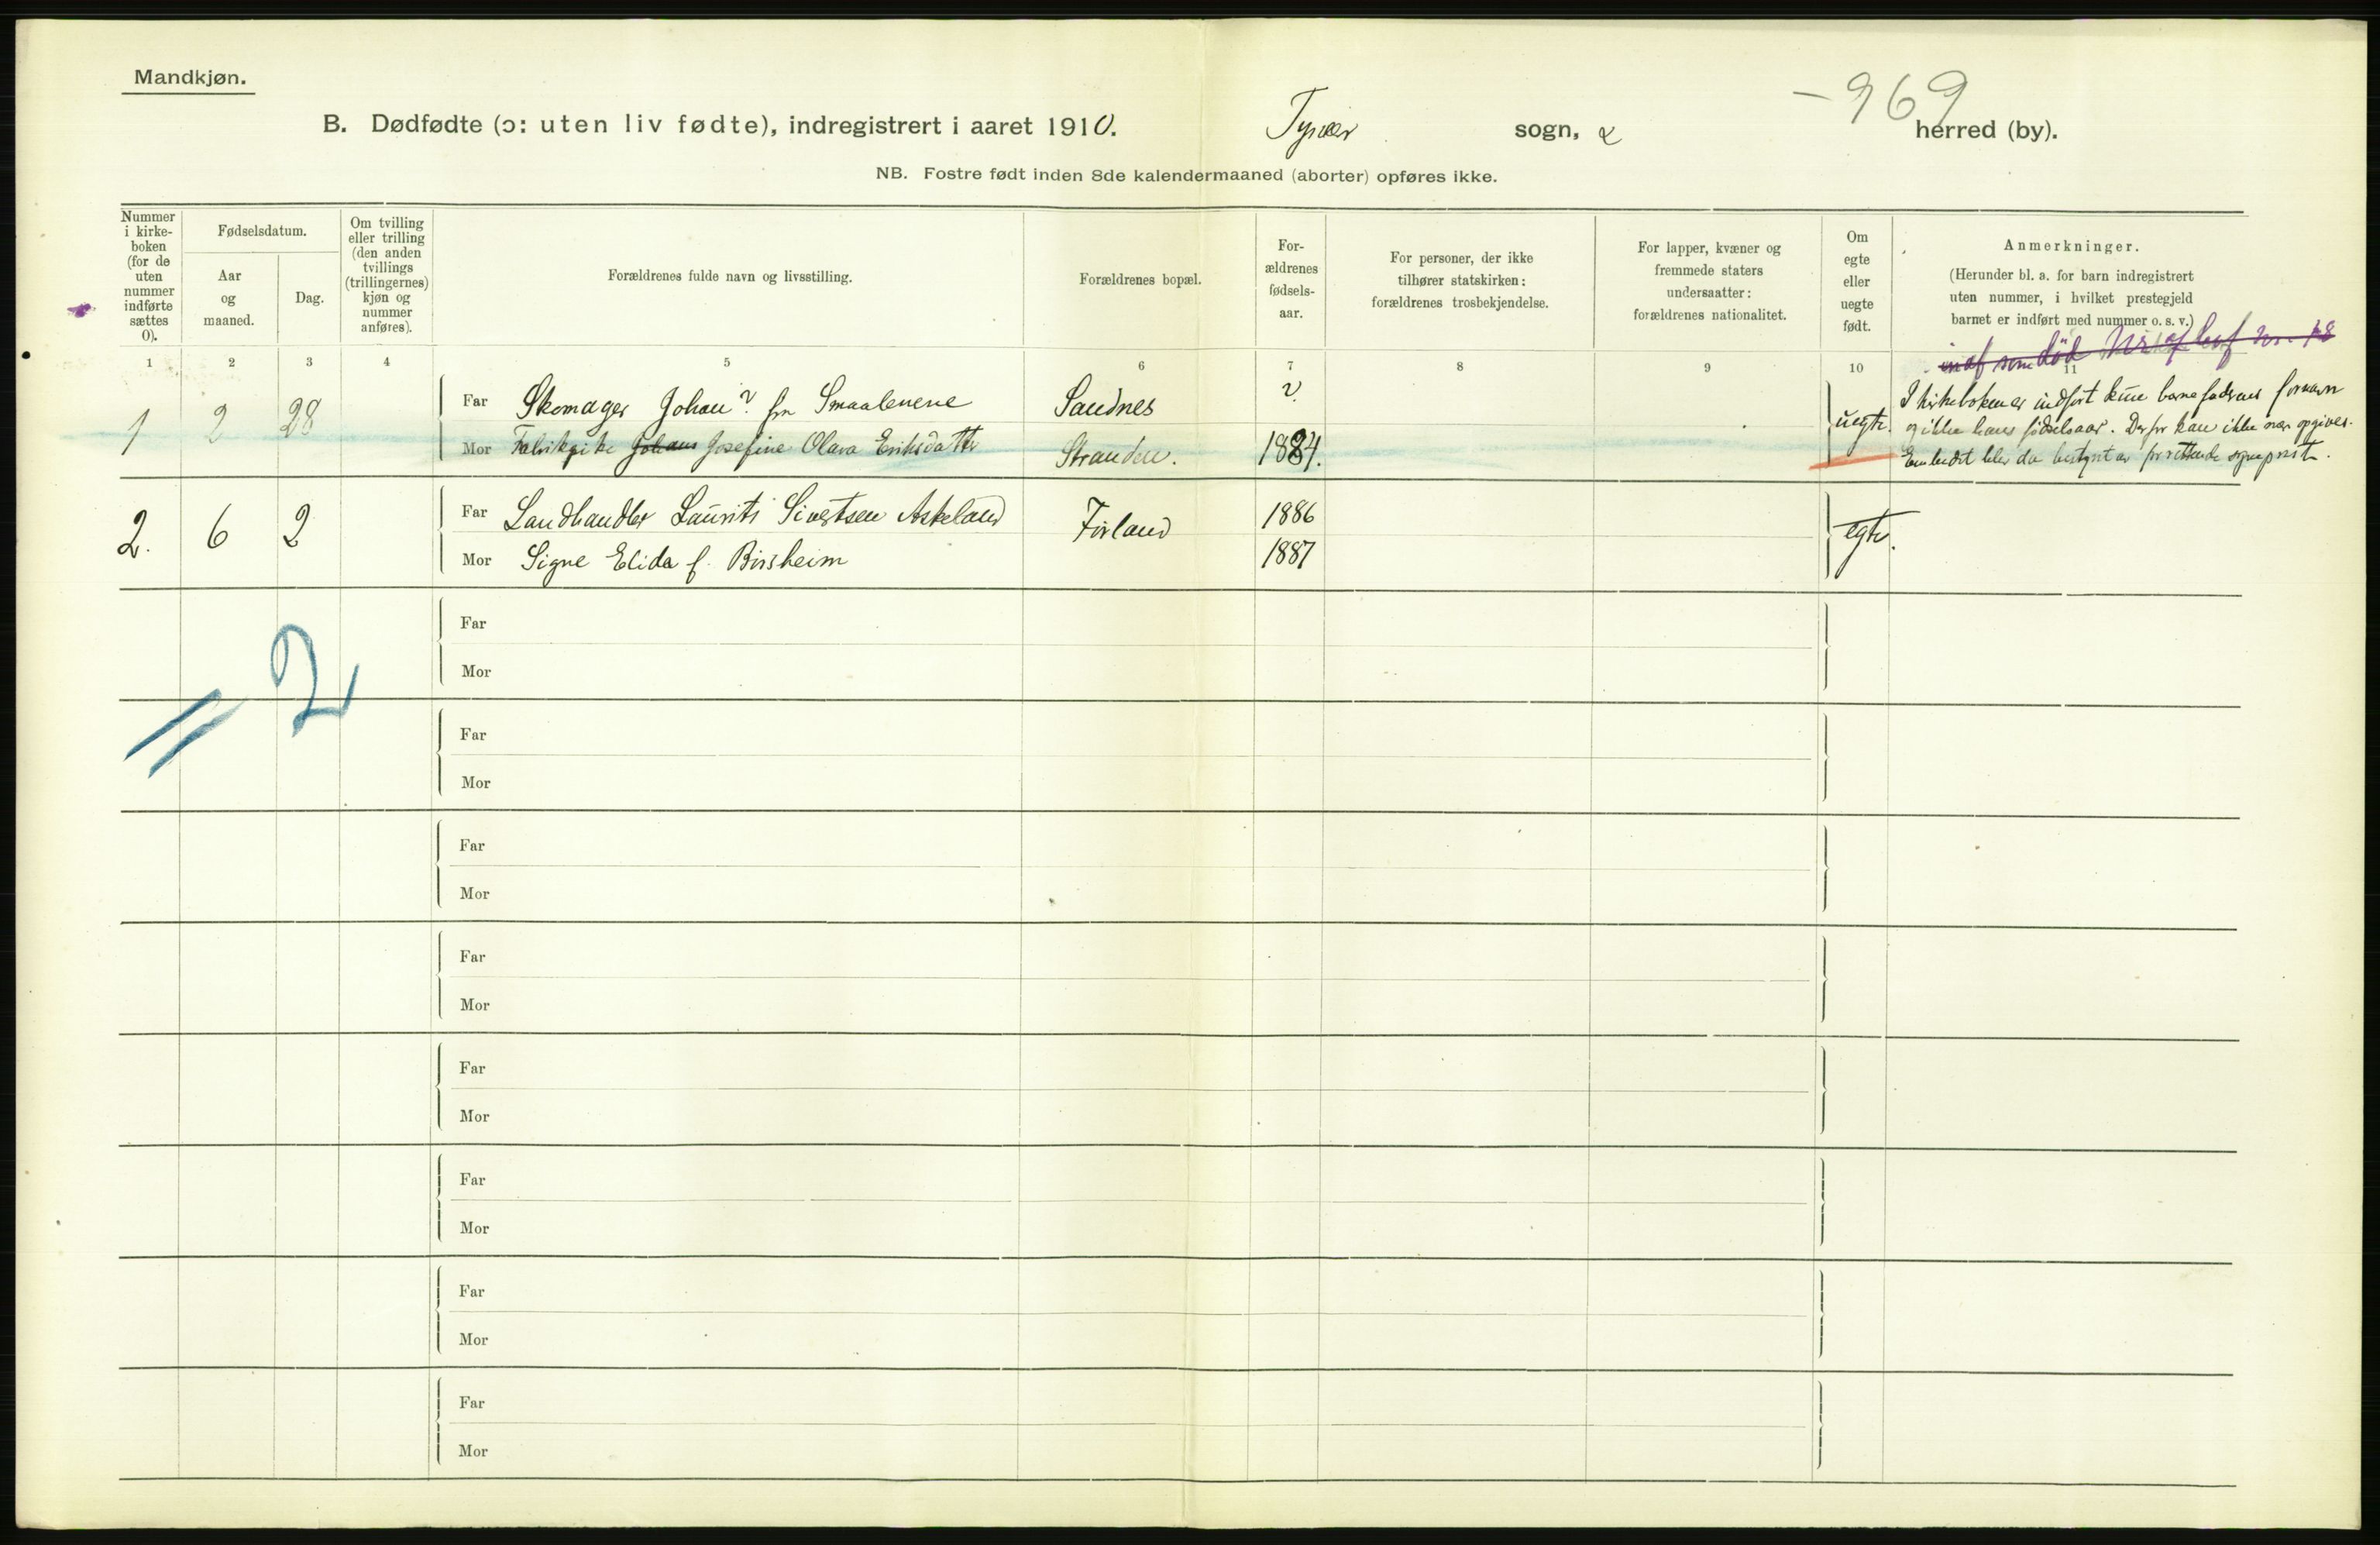 Mandkjøn.
- 969
B. Dødfødte (ɔ: uten liv fødte), indregistrert i aaret 1910. Tysvær sogn, herred (by).
NB. Fostre født inden 8de kalendermaaned (aborter) opføres ikke.
Nummer i kirke-boken (for de uten nummer indførte sættes 0).
Fødselsdatum.
Aar og maaned.
Dag.
Om tvilling eller trilling (den anden tvillings (trillingernes) kjøn og nummer anføres).
Forældrenes fulde navn og livsstilling.
Forældrenes bopæl.
For-ældrenes fødsels-aar.
For personer, der ikke tilhører statskirken: forældrenes trosbekjendelse.
For lapper, kvæner og fremmede staters undersaatter: forældrenes nationalitet.
Om egte eller uegte født.
Anmerkninger.
(Herunder bl. a. for barn indregistrert uten nummer, i hvilket prestegjeld barnet er indført med nummer o. s. v.)
1 2 3 4 5 6 7 8 9 10 11
1 2 28 Far Skomager Johan? fra Smaalenene Sandnes ? uegte.
Mor Fabrikpike Johans Josefine Olava Eriksdatter Stranden. 1884.
I kirkeboken er indført kun barnefaderens fornavn
og ikke hans fødselsaar. Derfor kan ikke opgives.
Embedet blev da bestyrt av sogneprest.
2. 6 2 Far Landhandler Laurits Sivertsen Askeland Førland 1886 egte.
Mor Signe Elida f. Birsheim 1887
Far
Mor
= 2
Far
Mor
Far
Mor
Far
Mor
Far
Mor
Far
Mor
Far
Mor
Far
Mor